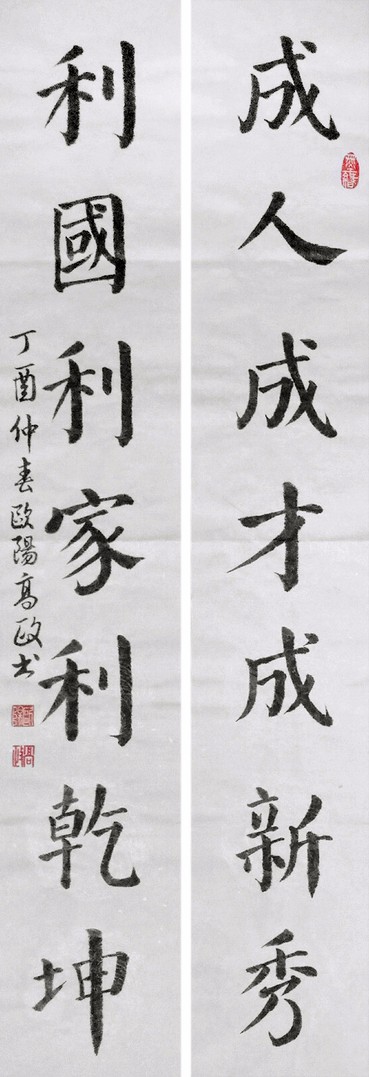 成人成才成新秀
利國利家利乾坤
丁酉仲春欧陽高政书